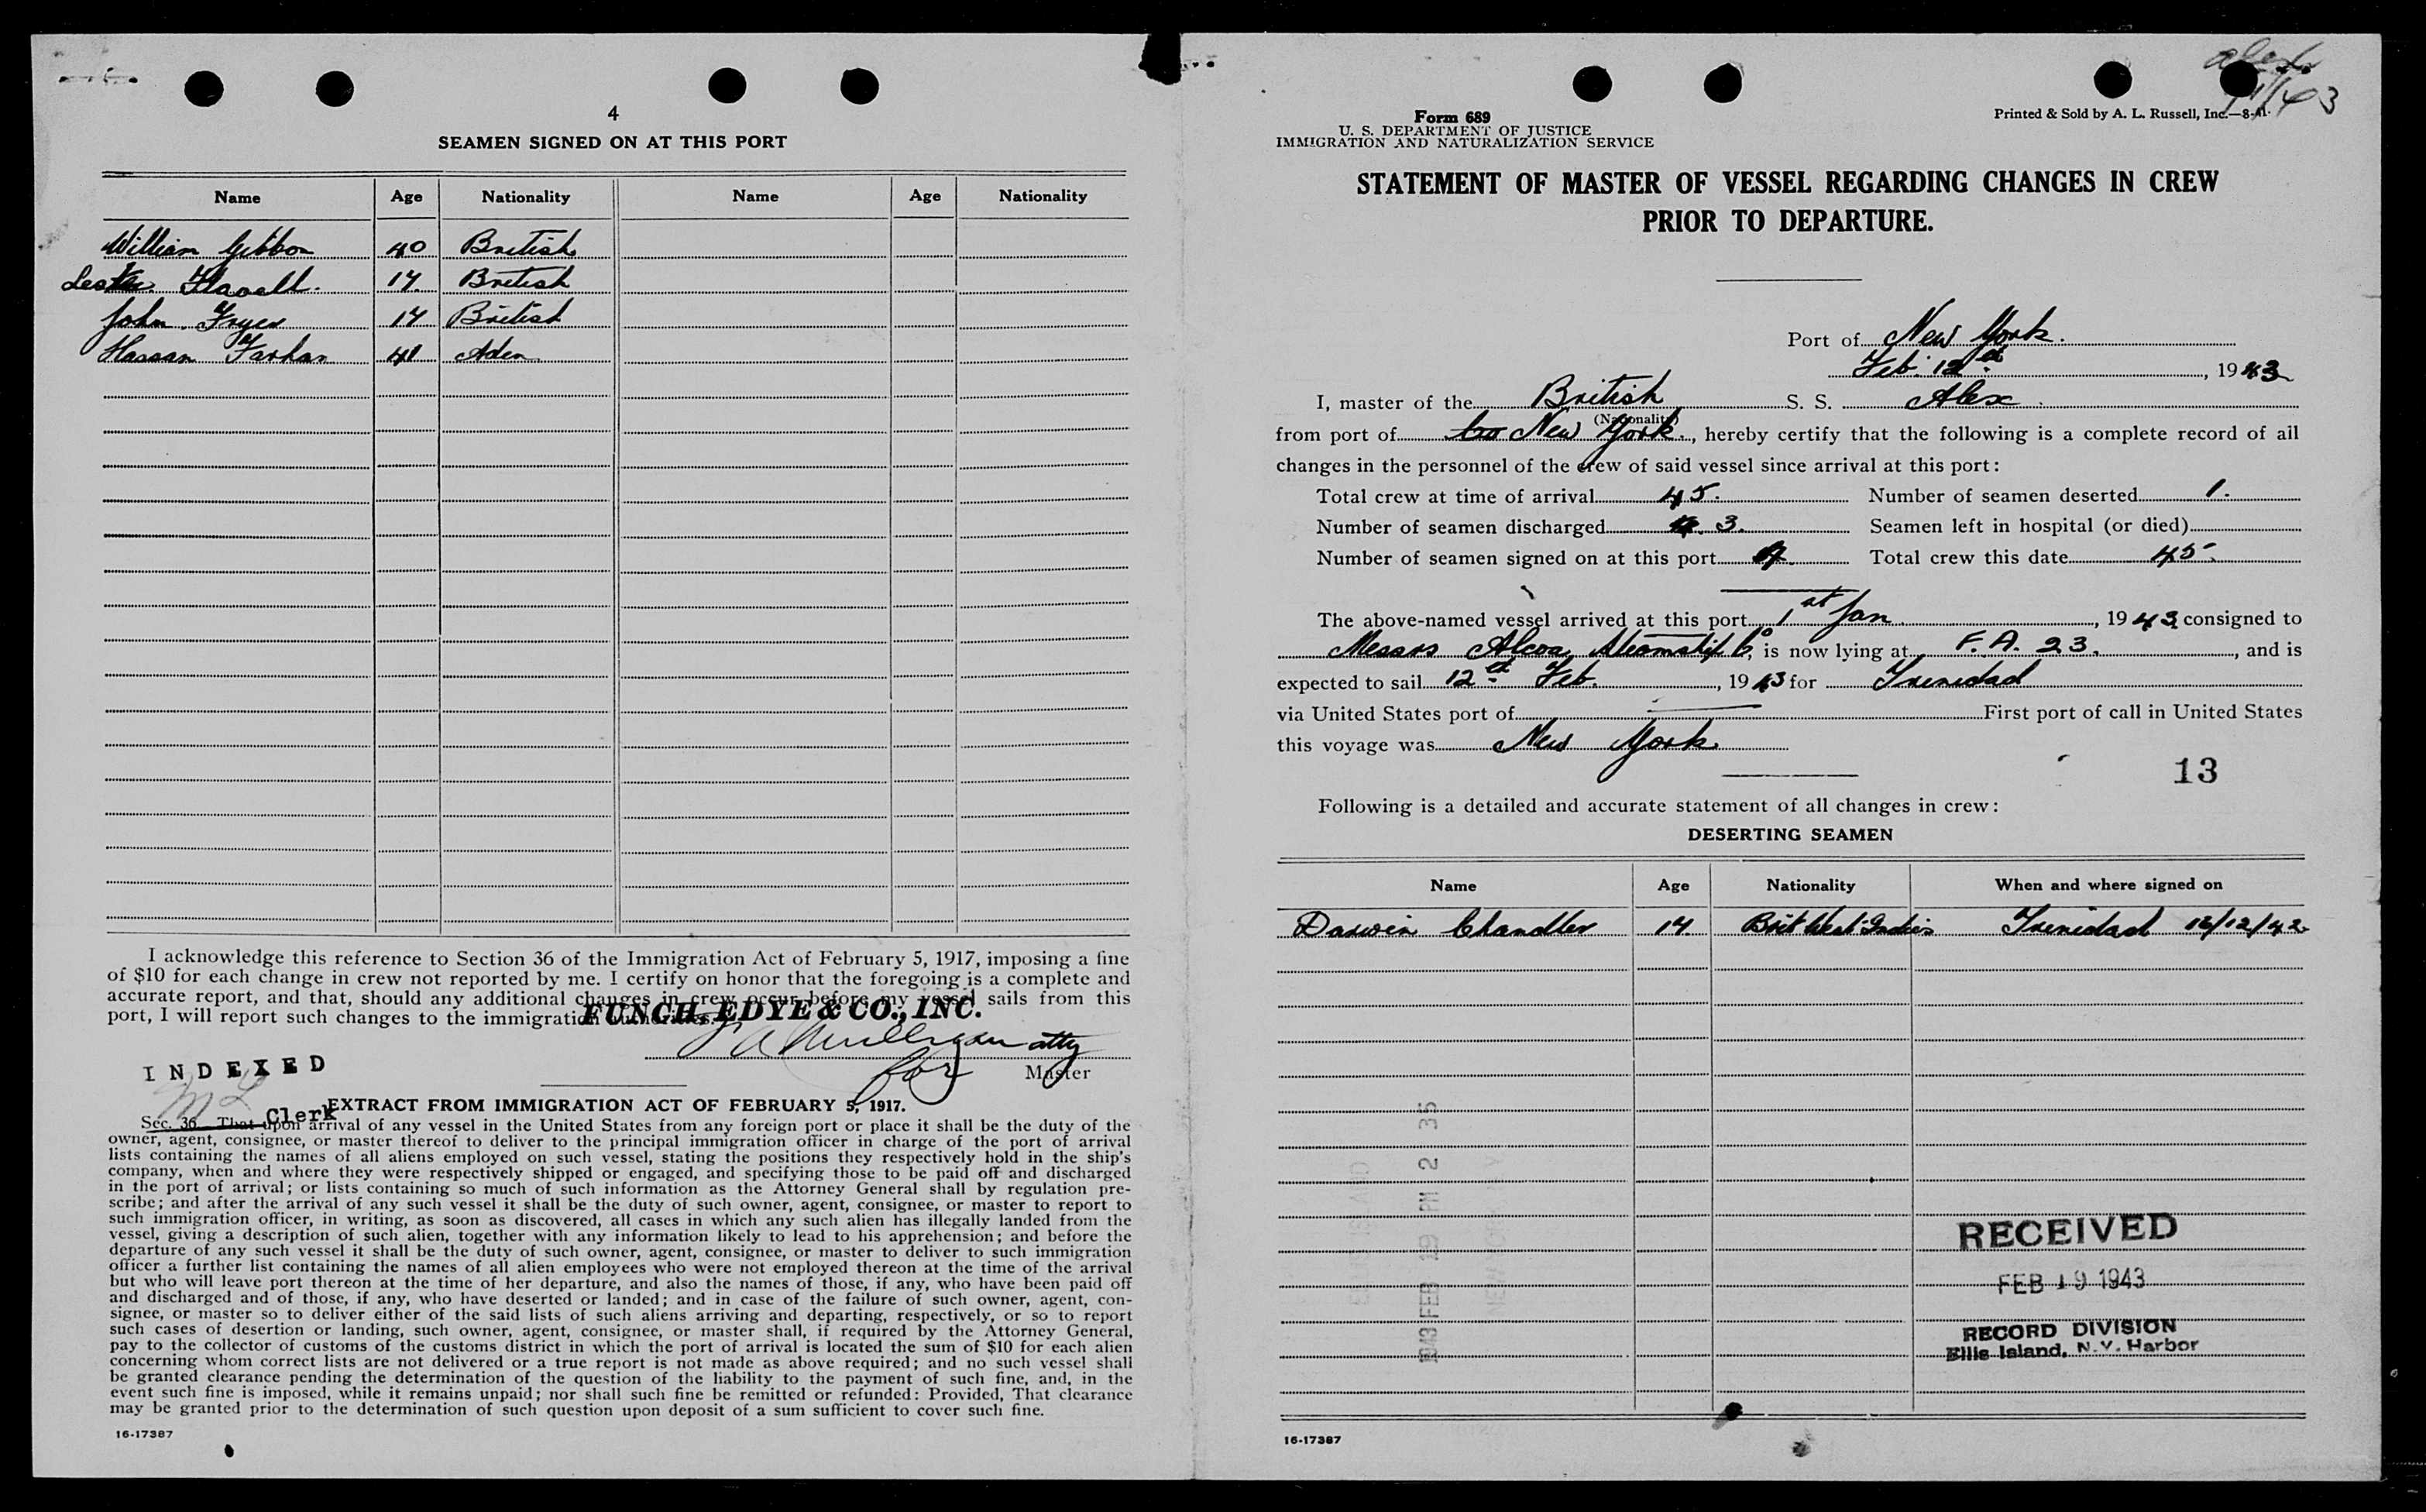 4
SEAMEN SIGNED ON AT THIS PORT
Name Age Nationality Name Age Nationality
William Gibbon 40 British
Lester Flavell. 17 British
John Fryer 17 British
Hassan Farhan 41 Aden
I acknowledge this reference to Section 36 of the Immigration Act of February 5, 1917, imposing a fine
of $10 for each change in crew not reported by me. I certify on honor that the foregoing is a complete and
accurate report, and that, should any additional changes in crew occur before my vessel sails from this
port, I will report such changes to the immigration authorities.
FUNCH, EDYE & CO., INC.
atty
for Master
INDEXED
Clerk
EXTRACT FROM IMMIGRATION ACT OF FEBRUARY 5, 1917.
Sec. 36. That upon arrival of any vessel in the United States from any foreign port or place it shall be the duty of the
owner, agent, consignee, or master thereof to deliver to the principal immigration officer in charge of the port of arrival
lists containing the names of all aliens employed on such vessel, stating the positions they respectively hold in the ship's
company, when and where they were respectively shipped or engaged, and specifying those to be paid off and discharged
in the port of arrival; or lists containing so much of such information as the Attorney General shall by regulation pre-
scribe; and after the arrival of any such vessel it shall be the duty of such owner, agent, consignee, or master to report to
such immigration officer, in writing, as soon as discovered, all cases in which any such alien has illegally landed from the
vessel, giving a description of such alien, together with any information likely to lead to his apprehension; and before the
departure of any such vessel it shall be the duty of such owner, agent, consignee, or master to deliver to such immigration
officer a further list containing the names of all alien employees who were not employed thereon at the time of the arrival
but who will leave port thereon at the time of her departure, and also the names of those, if any, who have been paid off
and discharged and of those, if any, who have deserted or landed; and in case of the failure of such owner, agent, con-
signee, or master so to deliver either of the said lists of such aliens arriving and departing, respectively, or so to report
such cases of desertion or landing, such owner, agent, consignee, or master shall, if required by the Attorney General,
pay to the collector of customs of the customs district in which the port of arrival is located the sum of $10 for each alien
concerning whom correct lists are not delivered or a true report is not made as above required; and no such vessel shall
be granted clearance pending the determination of the question of the liability to the payment of such fine, and, in the
event such fine is imposed, while it remains unpaid; nor shall such fine be remitted or refunded: Provided, That clearance
may be granted prior to the determination of such question upon deposit of a sum sufficient to cover such fine.
16-17387
Form 689
U. S. DEPARTMENT OF JUSTICE
IMMIGRATION AND NATURALIZATION SERVICE
Printed & Sold by A. L. Russell, Inc.—8-41.
STATEMENT OF MASTER OF VESSEL REGARDING CHANGES IN CREW
PRIOR TO DEPARTURE.
Port of New York.
Feb. 12th, 1943
I, master of the British S. S. Alex
(Nationality)
from port of New York., hereby certify that the following is a complete record of all
changes in the personnel of the crew of said vessel since arrival at this port:
Total crew at time of arrival 45. Number of seamen deserted 1.
Number of seamen discharged 3. Seamen left in hospital (or died)
Number of seamen signed on at this port 4. Total crew this date 45
The above-named vessel arrived at this port 1st Jan, 1943 consigned to
Messrs Alcoa Steamship Co, is now lying at F. A. 23., and is
expected to sail 12th Feb., 1943 for Trinidad
via United States port of First port of call in United States
this voyage was New York
13
Following is a detailed and accurate statement of all changes in crew:
DESERTING SEAMEN
Name Age Nationality When and where signed on
Darwin Chandler 17 Brit West Indies Trinidad 16/12/42
1943 FEB 19 PM 2 35
RECEIVED
FEB 19 1943
RECORD DIVISION
Ellis Island, N.Y. Harbor
16-17387